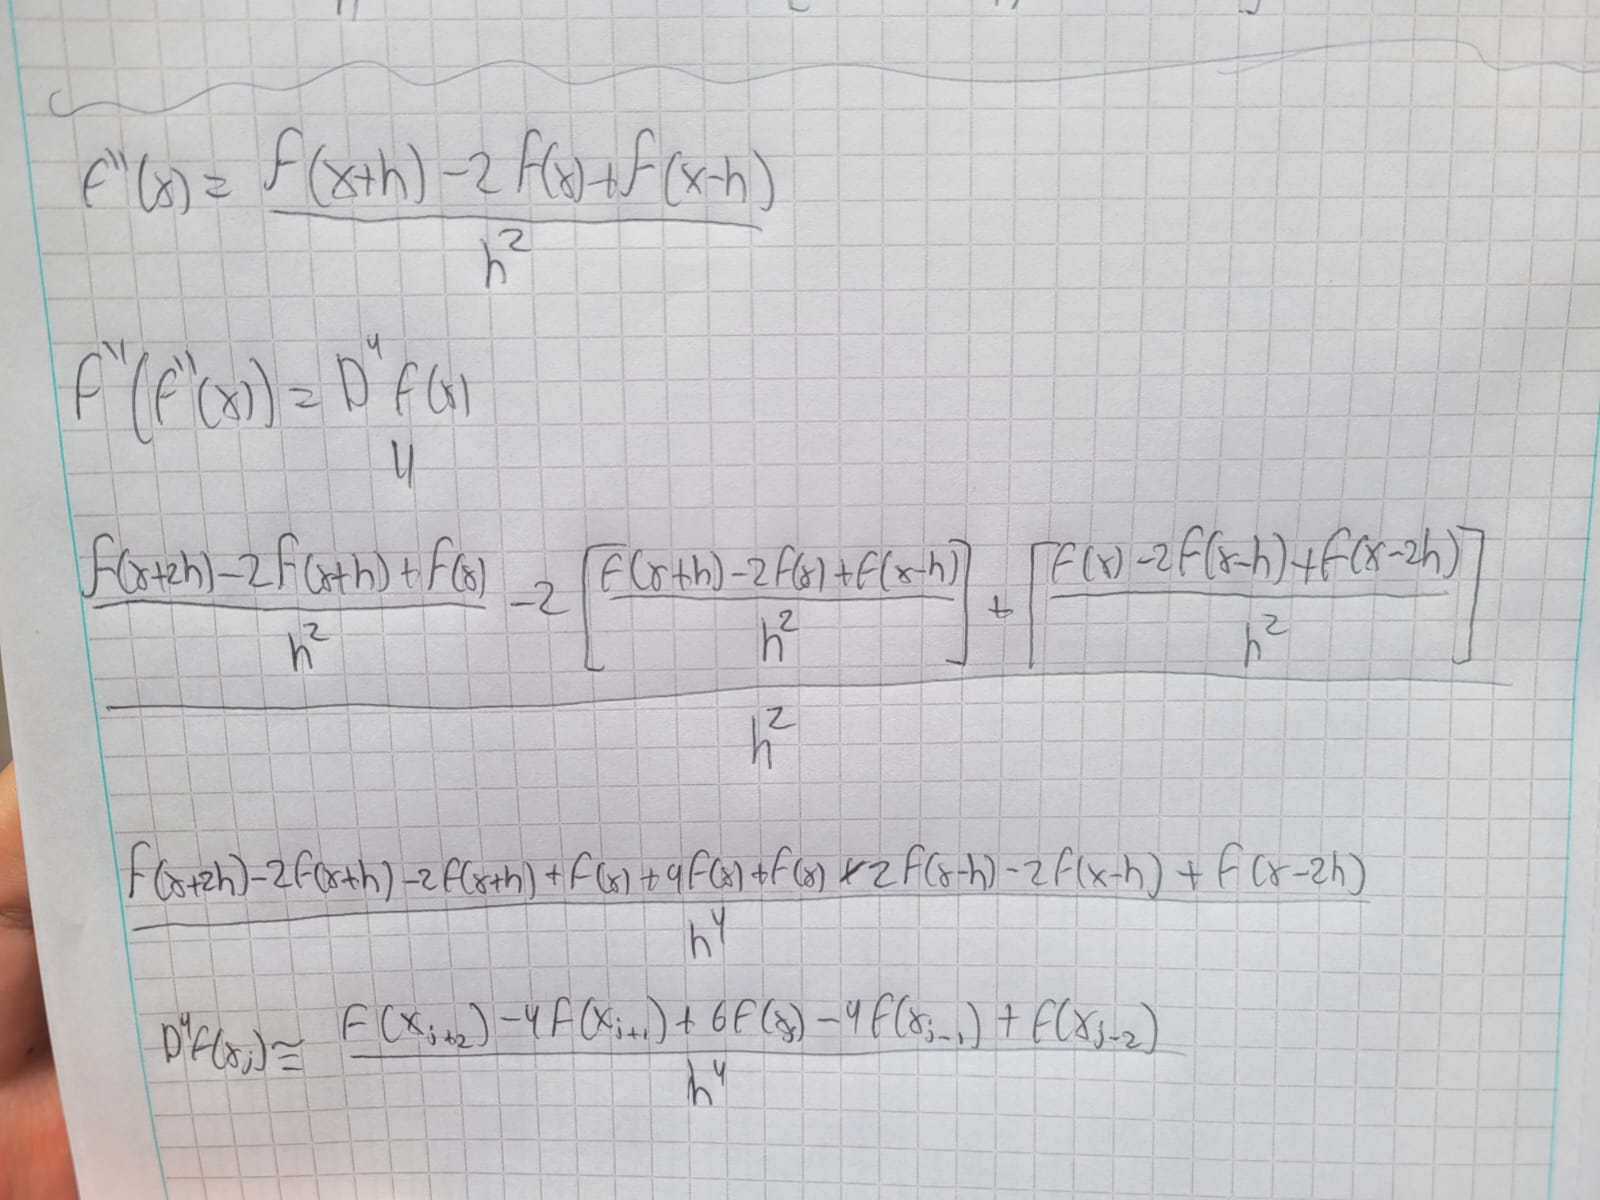 f''(x) = f(x+h) - 2f(x) + f(x-h)
h²
f''(f''(x)) = D⁴ f(x)
4
f(x+2h) - 2f(x+h) + f(x) - 2 [ f(x+h) - 2f(x) + f(x-h) ] + [ f(x) - 2f(x-h) + f(x-2h) ]
h² h² h²
h²
f(x+2h) - 2f(x+h) - 2f(x+h) + f(x) + 4f(x) + f(x) 2f(x-h) - 2f(x-h) + f(x-2h)
h⁴
D⁴f(xⱼ) ≅ f(xⱼ₊₂) - 4f(xⱼ₊₁) + 6f(xⱼ) - 4f(xⱼ₋₁) + f(xⱼ₋₂)
h⁴